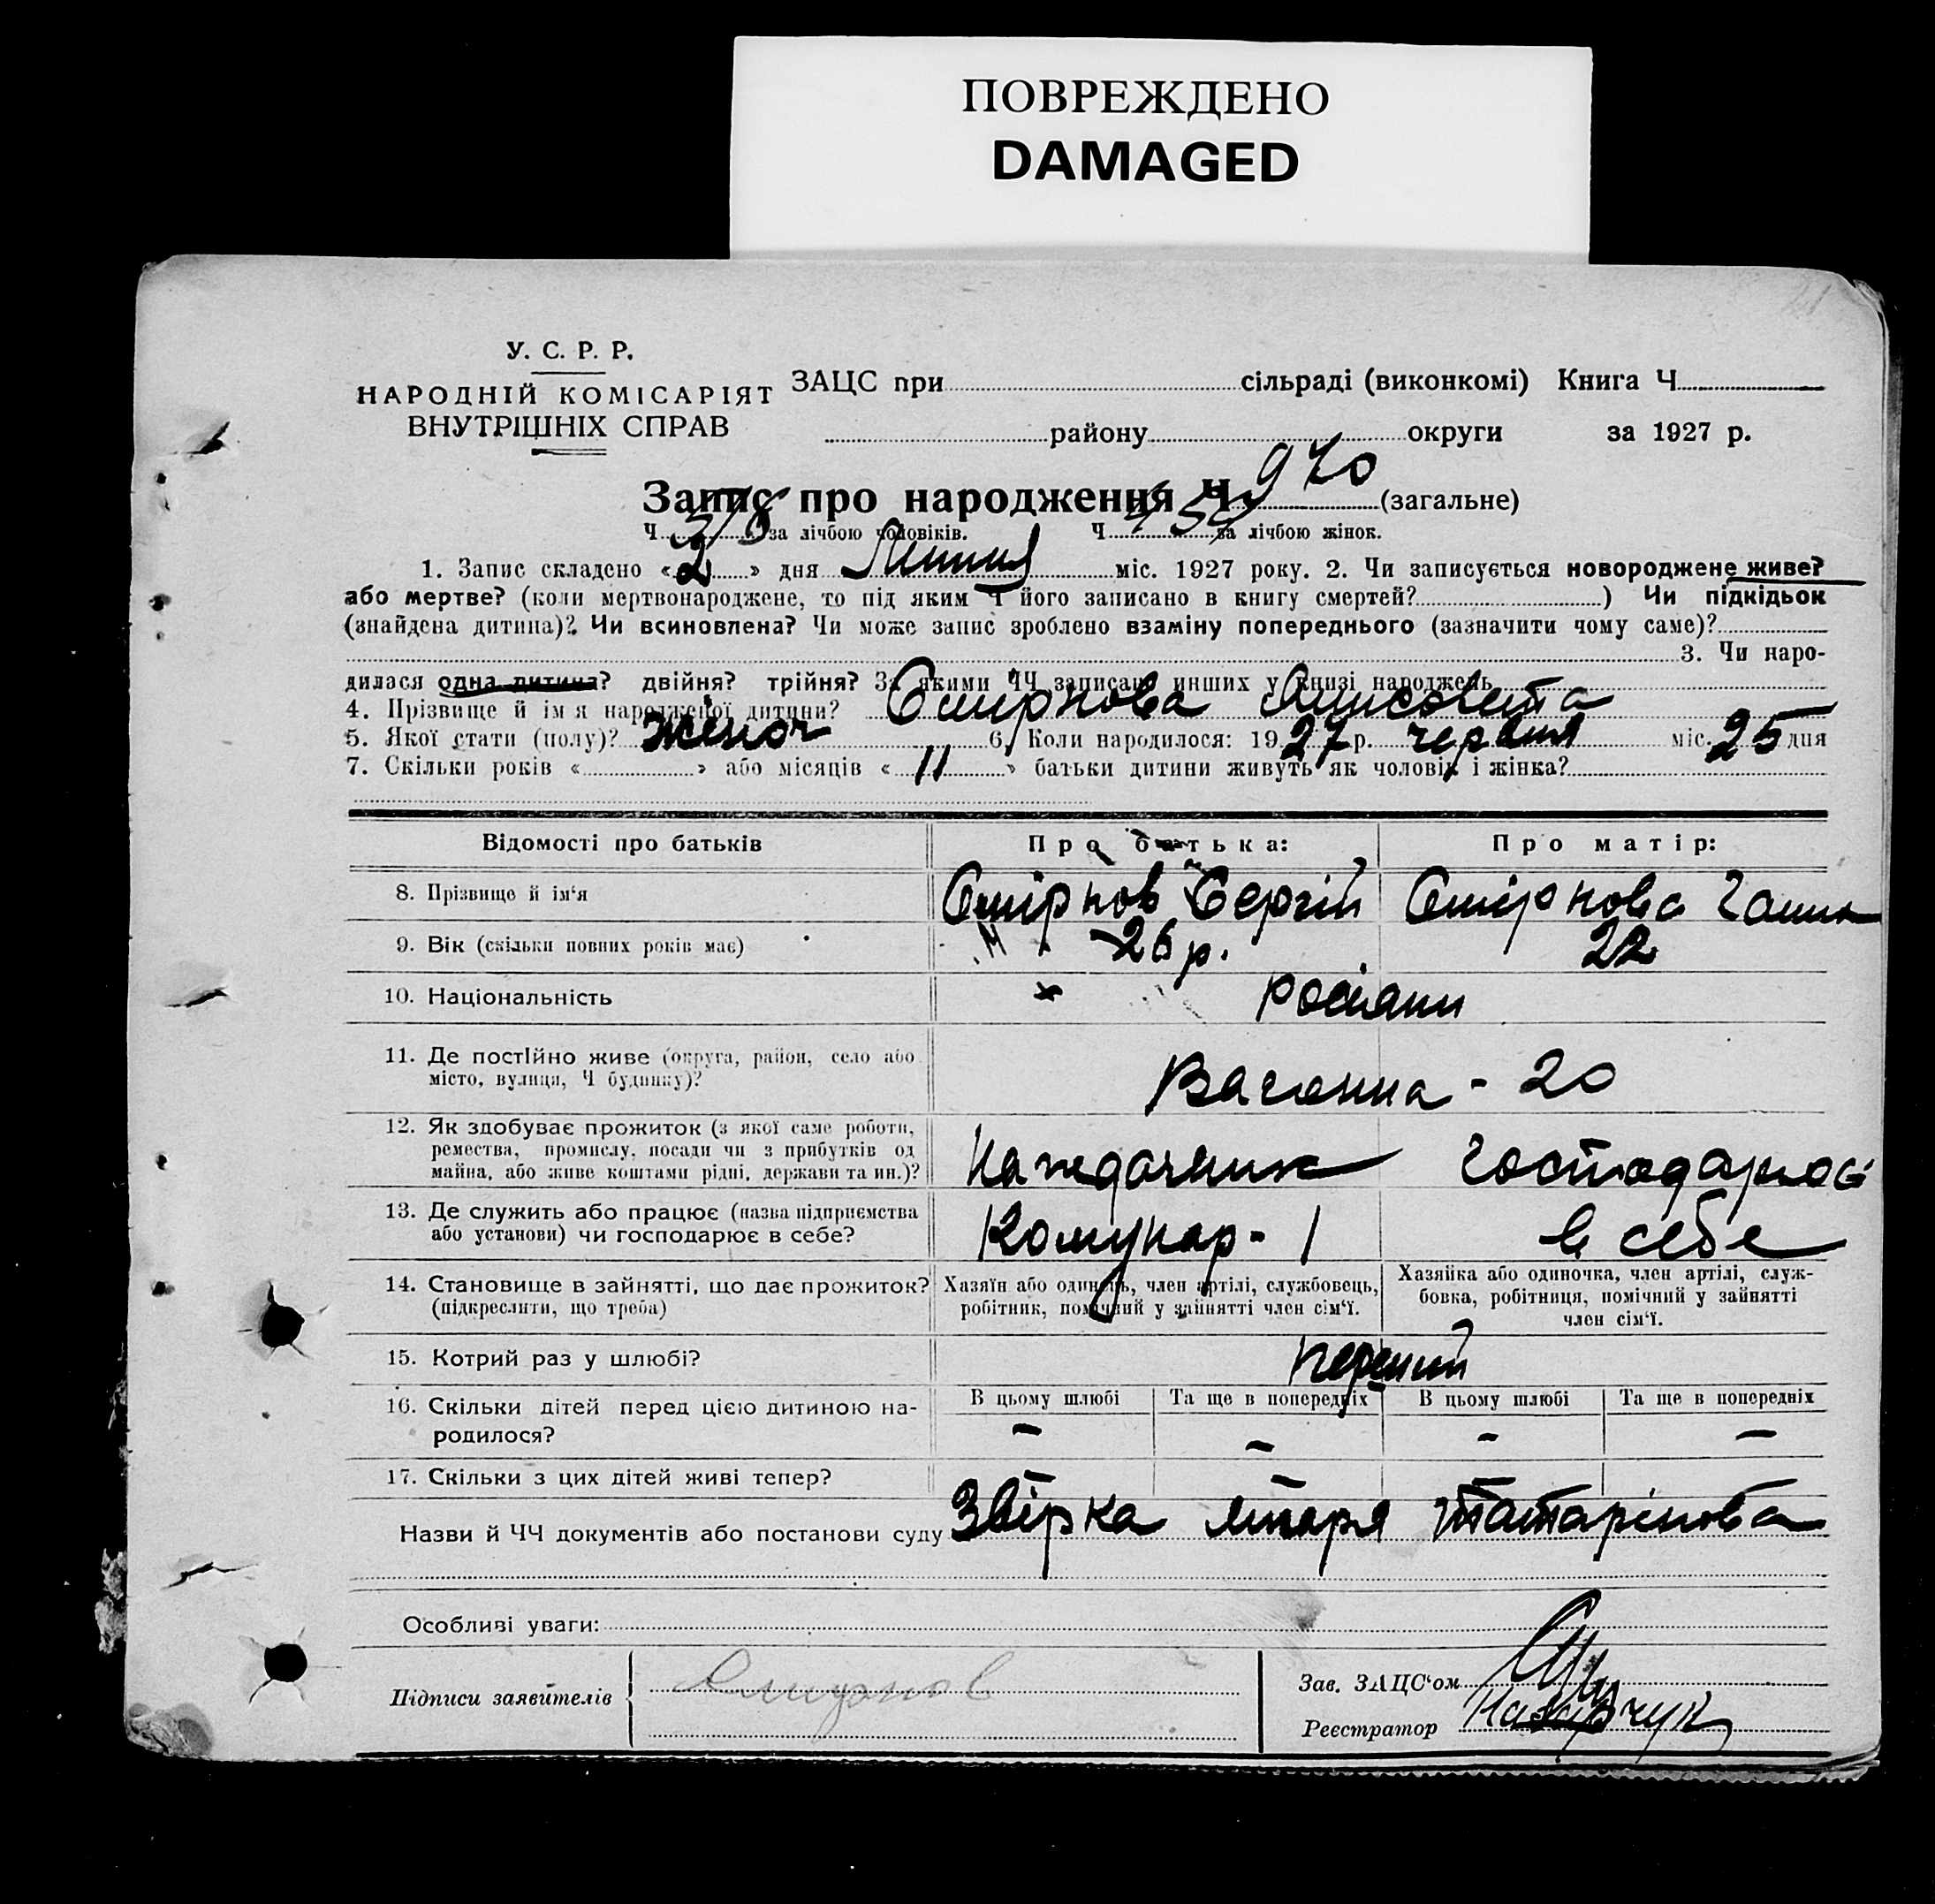 ПОВРЕЖДЕНО
DAMAGED
У. С. Р. Р.
НАРОДНІЙ КОМІСАРІЯТ
ВНУТРІШНІХ СПРАВ
ЗАЦС при сільраді (виконкомі) Книга Ч.
району округи за 1927 р.
Запис про народження Ч. 970 (загальне)
Ч. за лічбою чоловіків. Ч. за лічбою жінок.
1. Запис складено «2» дня Липня міс. 1927 року. 2. Чи записується новороджене живе?
або мертве? (коли мертвонароджене, то під яким Ч його записано в книгу смертей? ) Чи підкідьок
(знайдена дитина)? Чи всиновлена? Чи може запис зроблено взаміну попереднього (зазначити чому саме)?
3. Чи наро-
дилася одна дитина? двійня? трійня? За якими ЧЧ записано инших у книзі народжень
4. Прізвище й ім'я народженої дитини? Смірнова Лисовета
5. Якої стати (полу)? жіноч 6. Коли народилося: 1927 р. червня міс. 25 дня
7. Скільки років « » або місяців « 11 » батьки дитини живуть як чоловік і жінка?
Відомості про батьків Про батька: Про матір:
8. Прізвище й ім'я Смірнов Сергій Смірнова Ганна
9. Вік (скільки повних років має) 26 р. 22
10. Національність росіяни
11. Де постійно живе (округа, район, село або
місто, вулиця, Ч будинку)? Вагонна - 20
12. Як здобуває прожиток (з якої саме роботи,
ремества, промислу, посади чи з прибутків од
майна, або живе коштами рідні, держави та ин.)? Наждачник господарює
13. Де служить або працює (назва підприємства
або установи) чи господарює в себе? Комунар - 1 в себе
14. Становище в зайнятті, що дає прожиток?
(підкреслити, що треба)
Хазяїн або одинець, член артілі, службовець,
робітник, помічний у зайнятті член сім'ї.
Хазяйка або одиночка, член артілі, служ-
бовка, робітниця, помічний у зайнятті
член сім'ї.
15. Котрий раз у шлюбі? перший
16. Скільки дітей перед цією дитиною на-
родилося?
В цьому шлюбі Та ще в попередніх В цьому шлюбі Та ще в попередніх
– – – –
17. Скільки з цих дітей живі тепер? – – –
Назви й ЧЧ документів або постанови суду Звірка лікаря Татарінова
Особливі уваги:
Підписи заявителів Смирнов
Зав. ЗАЦС'ом
Реєстратор Назарчук